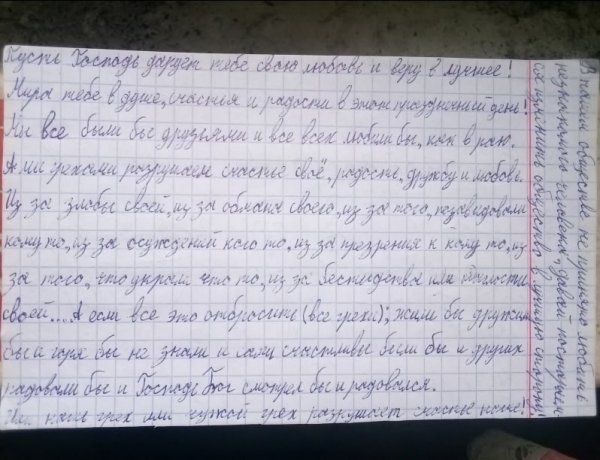 Пусть Господь дарует тебе свою любовь и веру в лучшее!
Мира тебе в душе, счастья и радости в этот праздничный день!
Мы все были бы друзьями и все всех любили бы, как в раю.
А мы грехами разрушаем счастье своё, радость, дружбу и любовь.
Из за злобы своей, из за обмана своего, из за того, позавидовали
кому то, из за осуждений кого то, из за презрения к кому то, из
за того, что украли что то, из за бесстыдства или наглости
своей.... А если все это отбросить (все грехи); жили бы дружно
бы и горя бы не знали и сами счастливы были бы и других
радовали бы и Господь Бог смотрел бы и радовался.
наш грех или чужой грех разрушает счастье наше!
В нашем обществе не принято любить
незнакомого человека, давай постараемся
изменить общество в лучшую сторону!